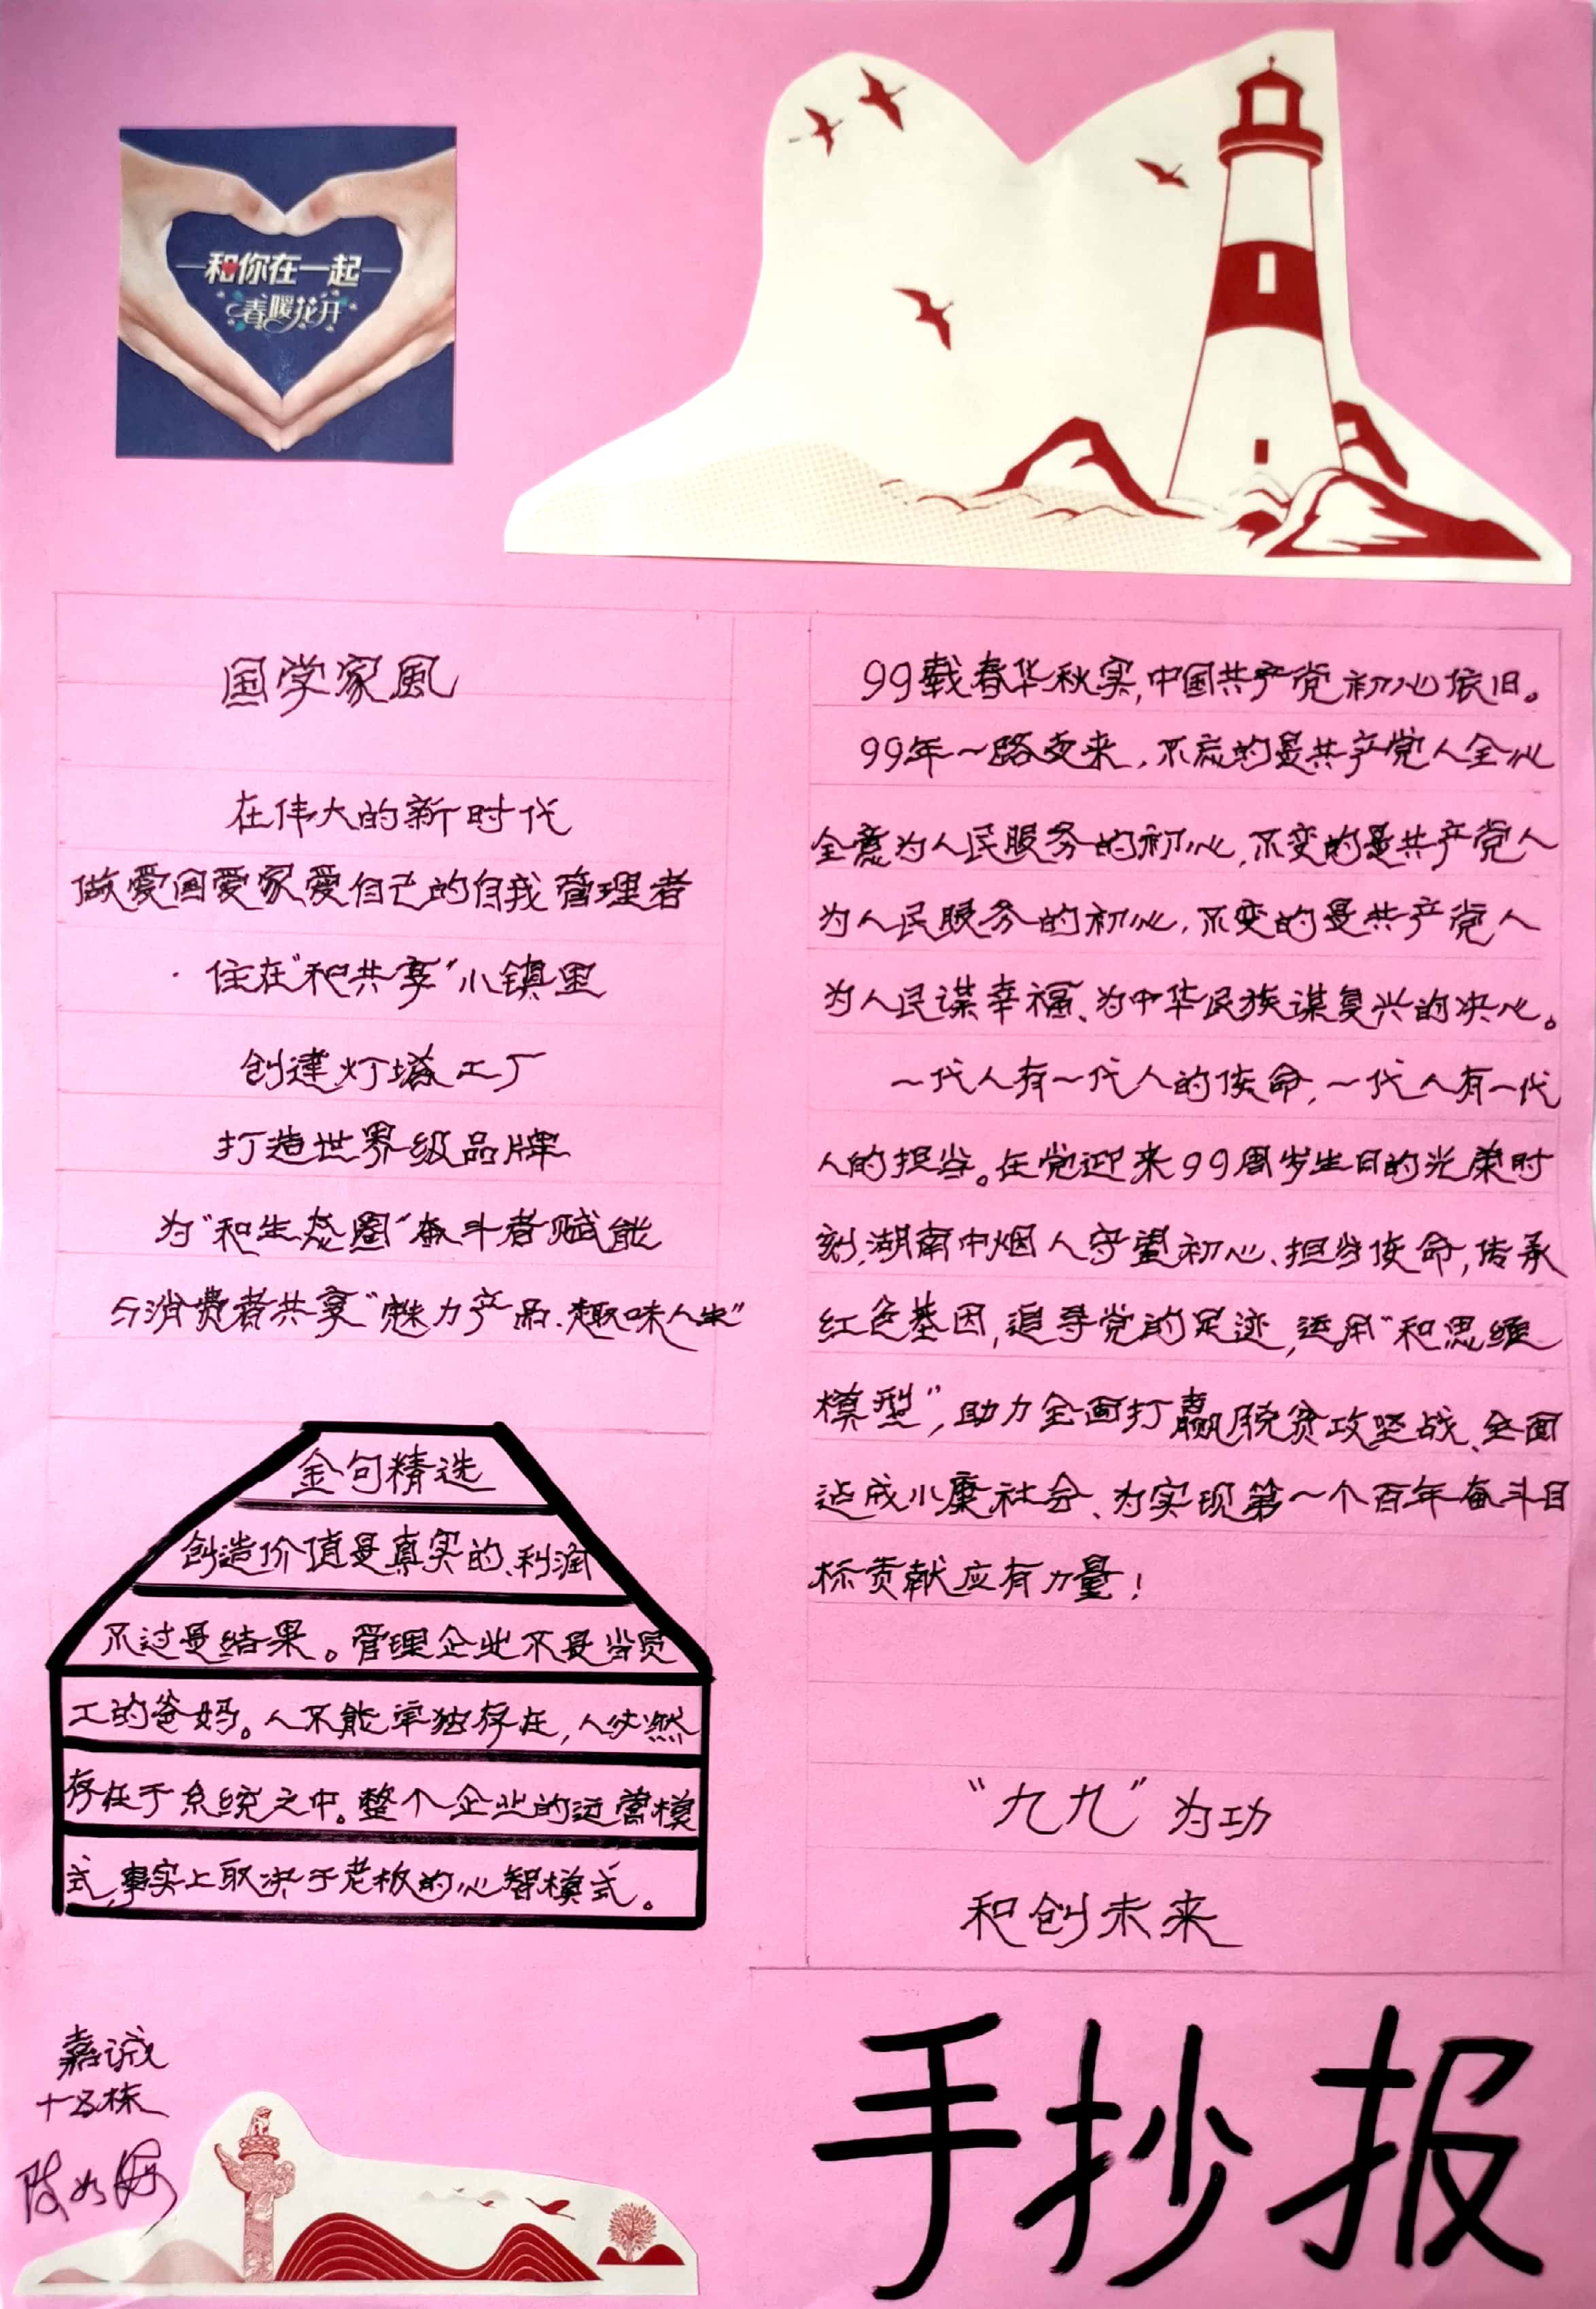 和你在一起
春暖花开
国学家風
在伟大的新时代
做爱国爱家爱自己的自我管理者
住在“和共享”小镇里
创建灯塔工厂
打造世界级品牌
为“和生态圈”奋斗者赋能
与消费者共享“魅力产品、趣味人生”
金句精选
创造价值是真实的、利润
不过是结果。管理企业不是当员
工的爸妈。人不能单独存在,人必然
存在于系统之中。整个企业的运营模
式,事实上取决于老板的心智模式。
99载春华秋实,中国共产党初心依旧。
99年一路走来,不忘的是共产党人全心
全意为人民服务的初心,不变的是共产党人
为人民服务的初心,不变的是共产党人
为人民谋幸福、为中华民族谋复兴的决心。
一代人有一代人的使命,一代人有一代
人的担当。在党迎来99周岁生日的光荣时
刻,湖南中烟人守望初心、担当使命,传承
红色基因,追寻党的足迹,运用“和思维
模型”,助力全面打赢脱贫攻坚战、全面
达成小康社会、为实现第一个百年奋斗目
标贡献应有力量!
“九九”为功
和创未来
嘉诚
栋
手抄报